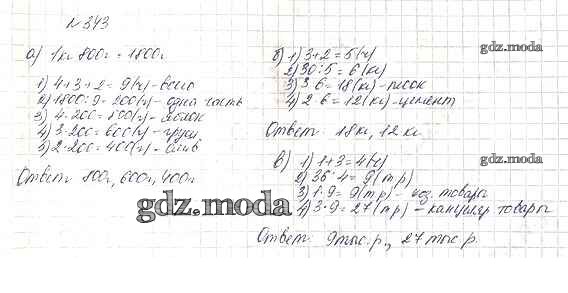 №343
а) 1кг 800г = 1800г
1) 4+3+2 = 9(ч) - всего
2) 1800:9 = 200(г) - одна часть
3) 4·200 = 800(г) - яблок
4) 3·200 = 600(г) - груш
5) 2·200 = 400(г) - слив
Ответ: 800г, 600г, 400г
б) 1) 3+2 = 5(ч)
2) 30:5 = 6(кг)
3) 3·6 = 18(кг) - песок
4) 2·6 = 12(кг) - цемент
Ответ: 18кг, 12кг
в) 1) 1+3 = 4(ч)
2) 36:4 = 9(т.р)
3) 1·9 = 9(т р) - хоз. товары
4) 3·9 = 27(т р) - канцеляр товары
Ответ: 9тыс.р., 27тыс.р.
gdz.moda
gdz.moda
gdz.moda